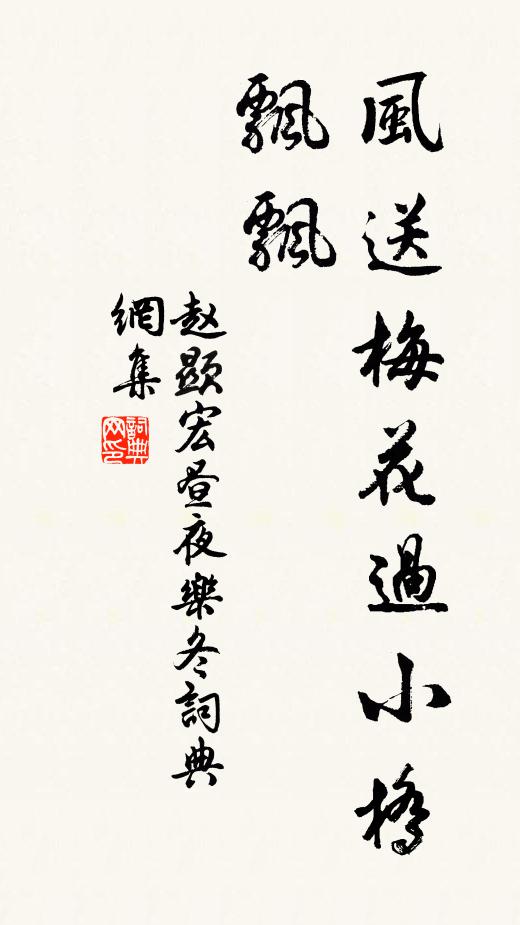 風送梅花過小橋
飄飄
赵顯宏昼夜樂冬詞典
網集
詞典
网印